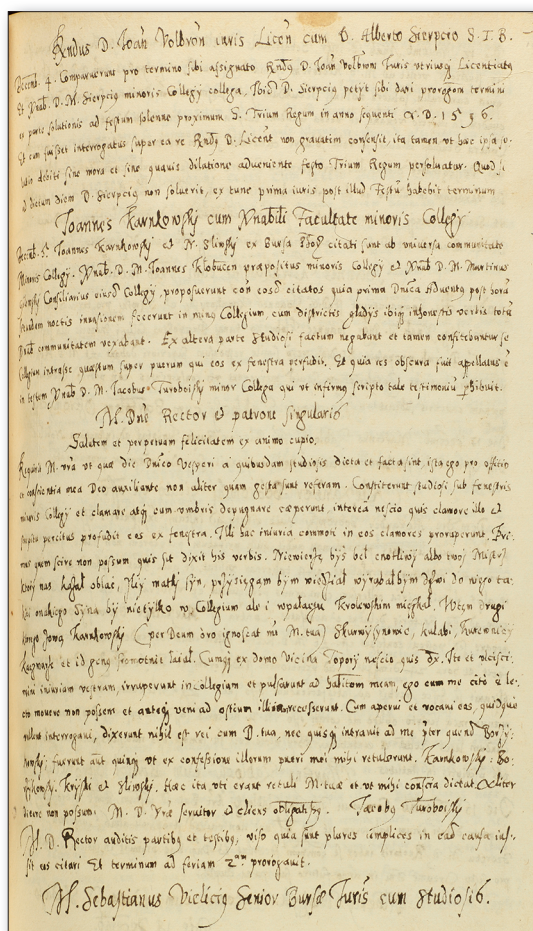 Rndus D. Joan Volbron iuris Licen cum D. Alberto Sierpcio S. I. B.
Decemb. 4. Comparuerunt pro termino sibi assignato Rndq D. Joan Volbrom Juris utriusq Licentiatq
Et Vnab. D. M. Sierpciq minoris Collegÿ collega. Ibid D. Sierpciq petÿt sibi dari prorogem termini
ex parte solutionis ad festum solenne proximum S. Trium Regum in anno sequenti D. 1596.
Et cum fuisset interrogatus super ea re Rndq D. Licent non gravatim consensit, ita tamen ut haec ipsa so-
lutio debiti sine mora et sine quavis dilatione adveniente festo Trium Regum persolvatur. Quod si
ad dictum diem D. Sierpciq non solverit, ex tunc prima iuris post illud Festu habebit terminum
Joannes Karnkowskÿ cum Vnabili Facultate minoris Collegÿ
Decemb. 5. Joannes Karnkowskÿ et N. Slinskÿ ex Bursa citati sunt ab universa communitate
Minoris Collegÿ. Vnab. D. M. Joannes Klobucen praepositus minoris Collegÿ et Vnab D. M. Martinus
Consiliarius eiusd Collegÿ, proposuerunt con eosd citatos quia prima Dnica Adventq post hora
noctis invasionem fecerunt in minq Collegium, cum districtis gladÿs ibiq inhonestis verbis tota
communitatem vexabant. Ex altera parte studiosi factum negabant et tamen confitebuntur se
Collegium intrasse quaestum super puerum qui eos ex fenestra perfudit. Et quia res obscura fuit appellatus e
in testem Vnab D. M. Jacobus Turoboiskÿ minor Collega qui ut infirmq scripto tale testimoniu phibuit.
M. Dne Rector et patrone singularis
Salutem et perpetuam felicitatem ex animo cupio.
Requirit M. vra ut quae die Dnico Vesperi a quibusdam studiosis dicta et facta sint, ista ego pro officio
et conscientia mea Deo auxiliante non aliter quam gesta sunt referam. Constiterunt studiosi sub fenestris
minoris Collegÿ et clamare atq cum umbris depugnare caeperunt, interea nescio quis clamore illo et
strepitu percitus profudit eos ex fenestra. Illi hac iniuria commoti in eos clamores proruperunt. Pri-
mus quem scire non possum quis sit dixit his verbis. Niewierzę bÿs bel cnotliwÿ albo twoÿ Mistrz
ktorÿ nas kazał oblac, zlÿ matkÿ sÿn, przÿsięgam bÿm wiedział wÿrąbałbÿm drzwi do niego ta-
kiego sÿna bÿ nietÿlko w Collegium ale i w pałacu krolewskim mieszkał. Wtem drugi
Karnkowskÿ (per Deum oro ignoscat mi M. tua) skurwÿsÿnowie, kulabi, kurewnicÿ
et id genq sromotnie łaiał. Cumq ex domo vicina Toporÿ nescio quis dx. Ite et ulcisci-
mini iniuriam vestram, irruperunt in Collegium et pulsarunt ad habitom meam, ego cum me cito e le-
cto movere non possem et anteq veni ad ostium illi recesserunt. Cum aperui et vocavi eos, quidquid
vellent interrogavi, dixerunt nihil est rei cum D. tua, nec quisq intravit ad me pter quend Borzÿ-
mowskÿ, fuerunt aut quinq ut ex confessione illorum pueri mei mihi retulerunt. Karnkowskÿ, Bo-
rzÿmowskÿ, Krÿskÿ et Slinskÿ. Haec ita uti erant retuli M. tuae et ut mihi conscia dictat aliter
dicere non possum. M. D. Vrae servitor et cliens obligatissq. Jacobq Turoboiskÿ
M. D. Rector auditis partibq et testibq, viso quia sunt plures complices in ead causa ius-
sit eos citari Et terminum ad feriam 2am prorogavit.
M. Sebastianus Vicliciq Senior Bursae Juris cum Studiosis.